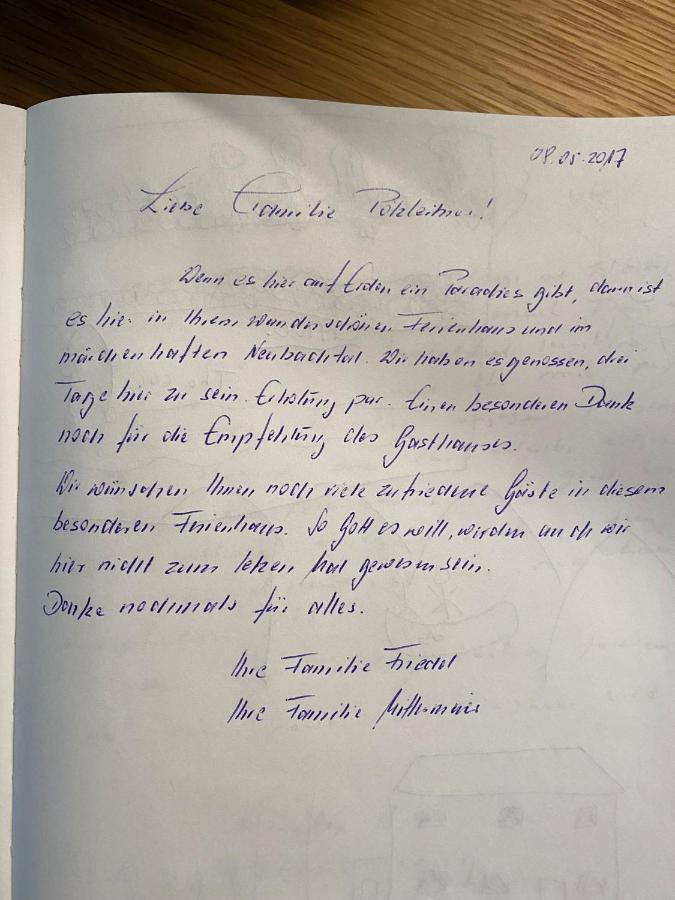 .05.2017
Liebe Familie Pötzleitner!
Wenn es hier auf Erden ein Paradies gibt, dann ist
es hier in Ihrem wunderschönen Ferienhaus und im
märchenhaften Neubachtal. Wir haben es genossen, drei
Tage hier zu sein. Erholung pur. Einen besonderen Dank
noch für die Empfehlung des Gasthauses.
Wir wünschen Ihnen noch viele zufriedene Gäste in diesem
besonderen Ferienhaus. So Gott es will, werden auch wir
hier nicht zum letzen Mal gewesen sein.
Danke nochmals für alles.
Ihre Familie Friedel
Ihre Familie